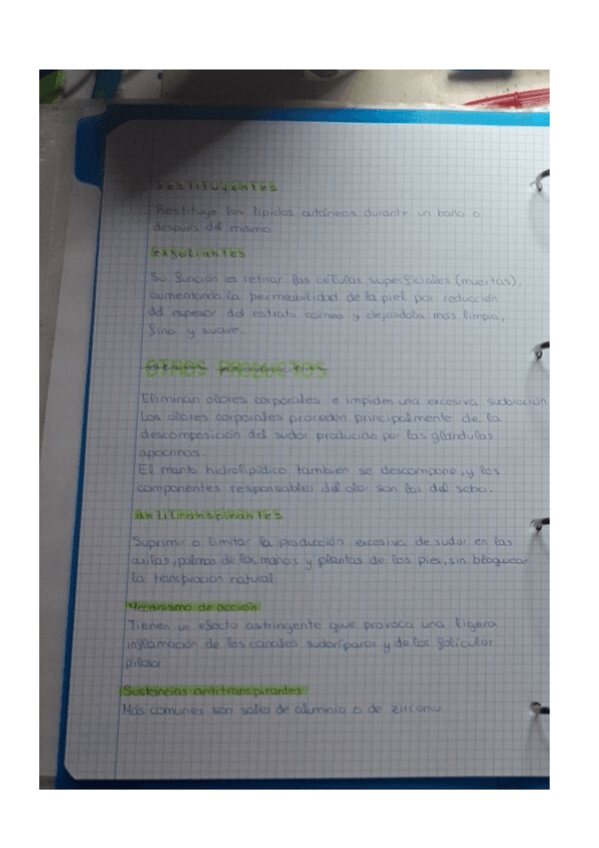 Restituyentes
Restituye los lípidos cutáneos durante un baño o
después del mismo
exfoliantes
Su función es retirar las células superficiales (muertas),
aumentando la permeabilidad de la piel por reducción
del espesor del estrato córneo y dejándola más limpia,
fina y suave.
OTROS PRODUCTOS
Eliminan olores corporales e impiden una excesiva sudoración
Los olores corporales proceden principalmente de la
descomposición del sudor producido por las glándulas
apocrinas.
El manto hidrolipídico también se descompone, y los
componentes responsables del olor son los del sebo.
antitranspirantes
Suprimir o limitar la producción excesiva de sudor en las
axilas, palmas de las manos y plantas de los pies, sin bloquear
la transpiración natural
Mecanismo de acción
Tienen un efecto astringente que provoca una ligera
inflamación de los canales sudoríparos y de los folículos
pilosos
Sustancias antitranspirantes
Más comunes son sales de aluminio o de zirconio